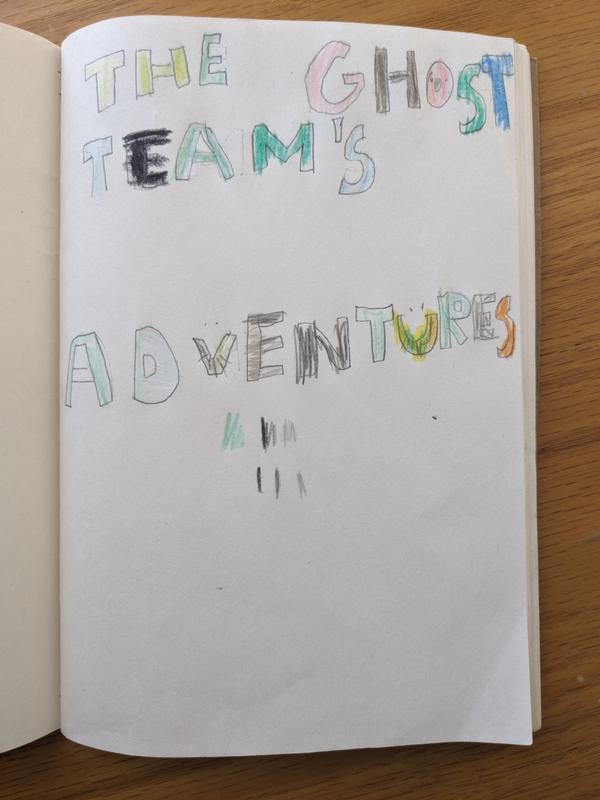 THE GHOST
TEAM'S
ADVENTURES